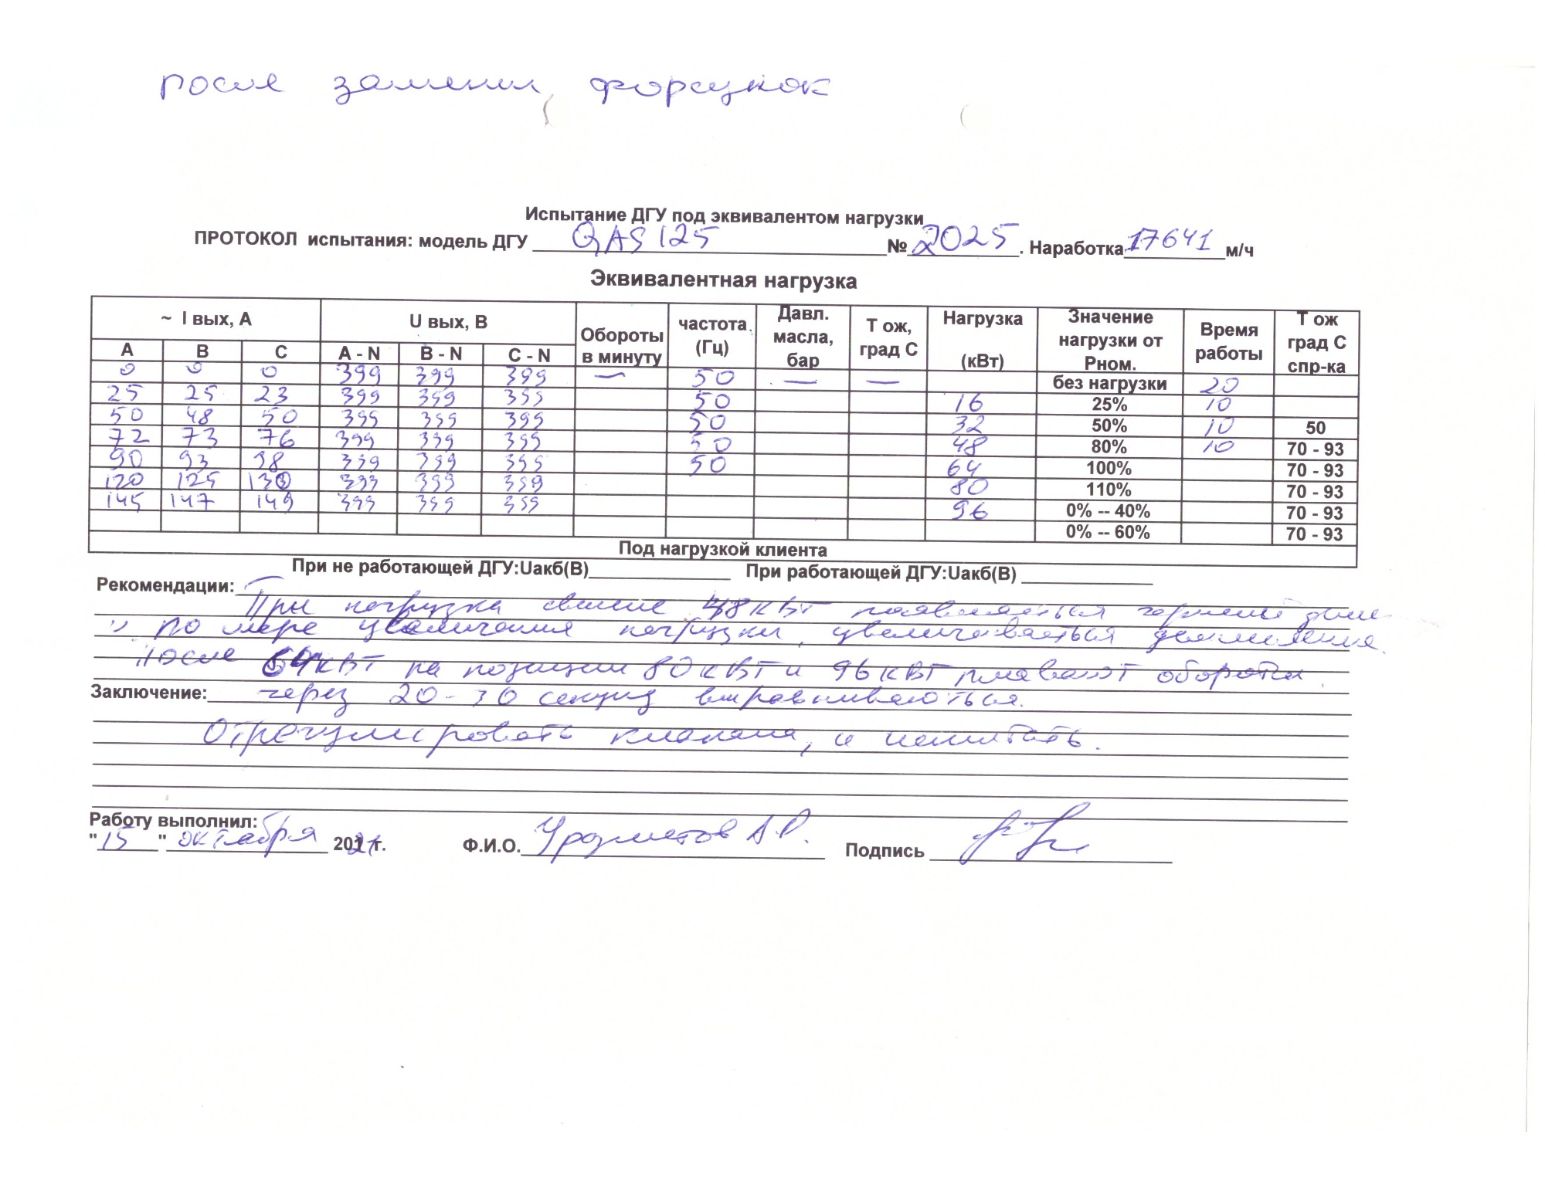 после замены форсунок
Испытание ДГУ под эквивалентом нагрузки
ПРОТОКОЛ испытания: модель ДГУ QAS 125 № 2025. Наработка 17641 м/ч
Эквивалентная нагрузка
~ I вых, А U вых, В Обороты в минуту частота (Гц) Давл. масла, бар Т ож, град С Нагрузка (кВт) Значение нагрузки от Рном. Время работы Т ож град С спр-ка
А В С А - N В - N С - N
0 0 0 399 399 399 — 50 — — без нагрузки 20
25 25 23 399 399 399 50 16 25% 10
50 48 50 399 399 399 50 32 50% 10 50
72 73 76 399 399 399 50 48 80% 10 70 - 93
90 93 98 399 399 399 50 64 100% 70 - 93
120 125 130 399 399 399 80 110% 70 - 93
145 147 149 399 399 399 96 0% -- 40% 70 - 93
0% -- 60% 70 - 93
Под нагрузкой клиента
При не работающей ДГУ:Uакб(В) При работающей ДГУ:Uакб(В)
Рекомендации:
При нагрузка свыше 48 кВт появляеться черный дым
по мере увеличения нагрузки, увеличиваеться дымление.
После 64кВт на позиции 80 кВт и 96 кВт плавают обороты
Заключение: через 20-30 секунд выравниваються.
Отрегулировать клапана, и испытать.
Работу выполнил:
"15" октября 2021 г. Ф.И.О. Подпись